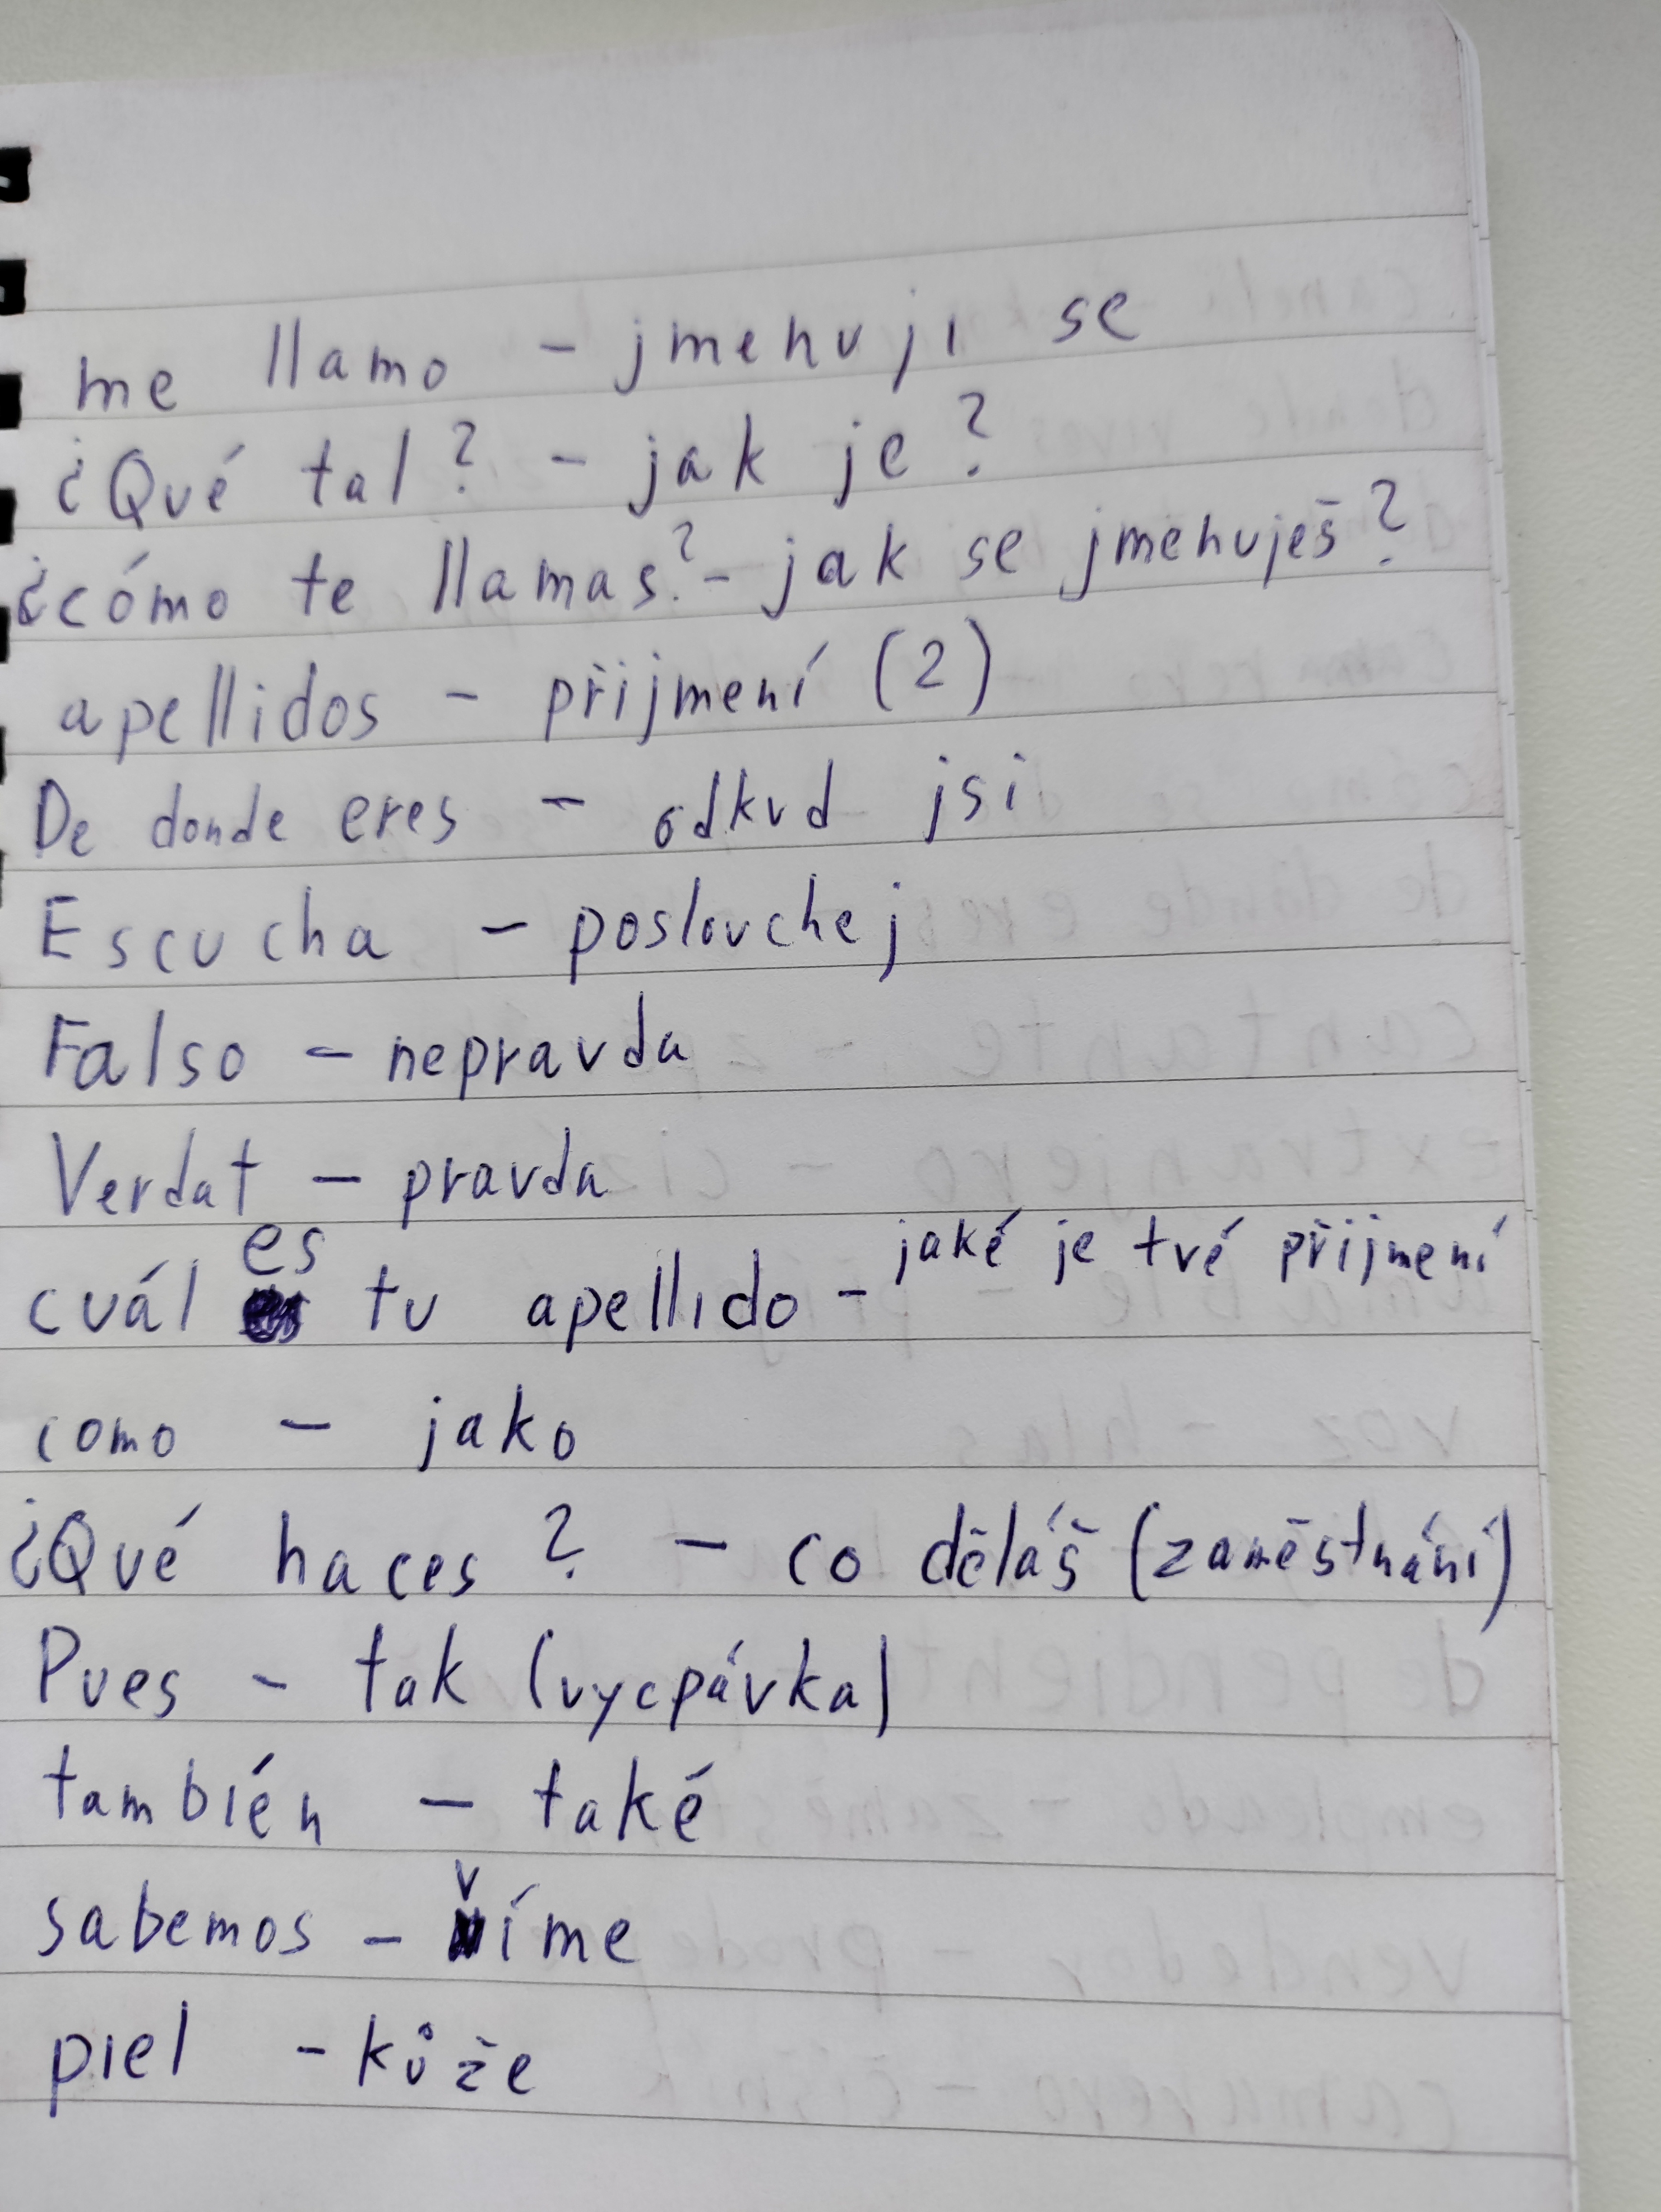 me llamo - jmenuji se
¿Qué tal? - jak je?
¿cómo te llamas? - jak se jmenuješ?
apellidos - přijmení (2)
De donde eres - odkud jsi
Escucha - poslouchej
Falso - nepravda
Verdat - pravda
cuál es tu apellido - jaké je tvé přijmení
como - jako
¿Qué haces? - co děláš (zaměstnání)
Pues - tak (vycpávka)
también - také
sabemos - víme
piel - kůže